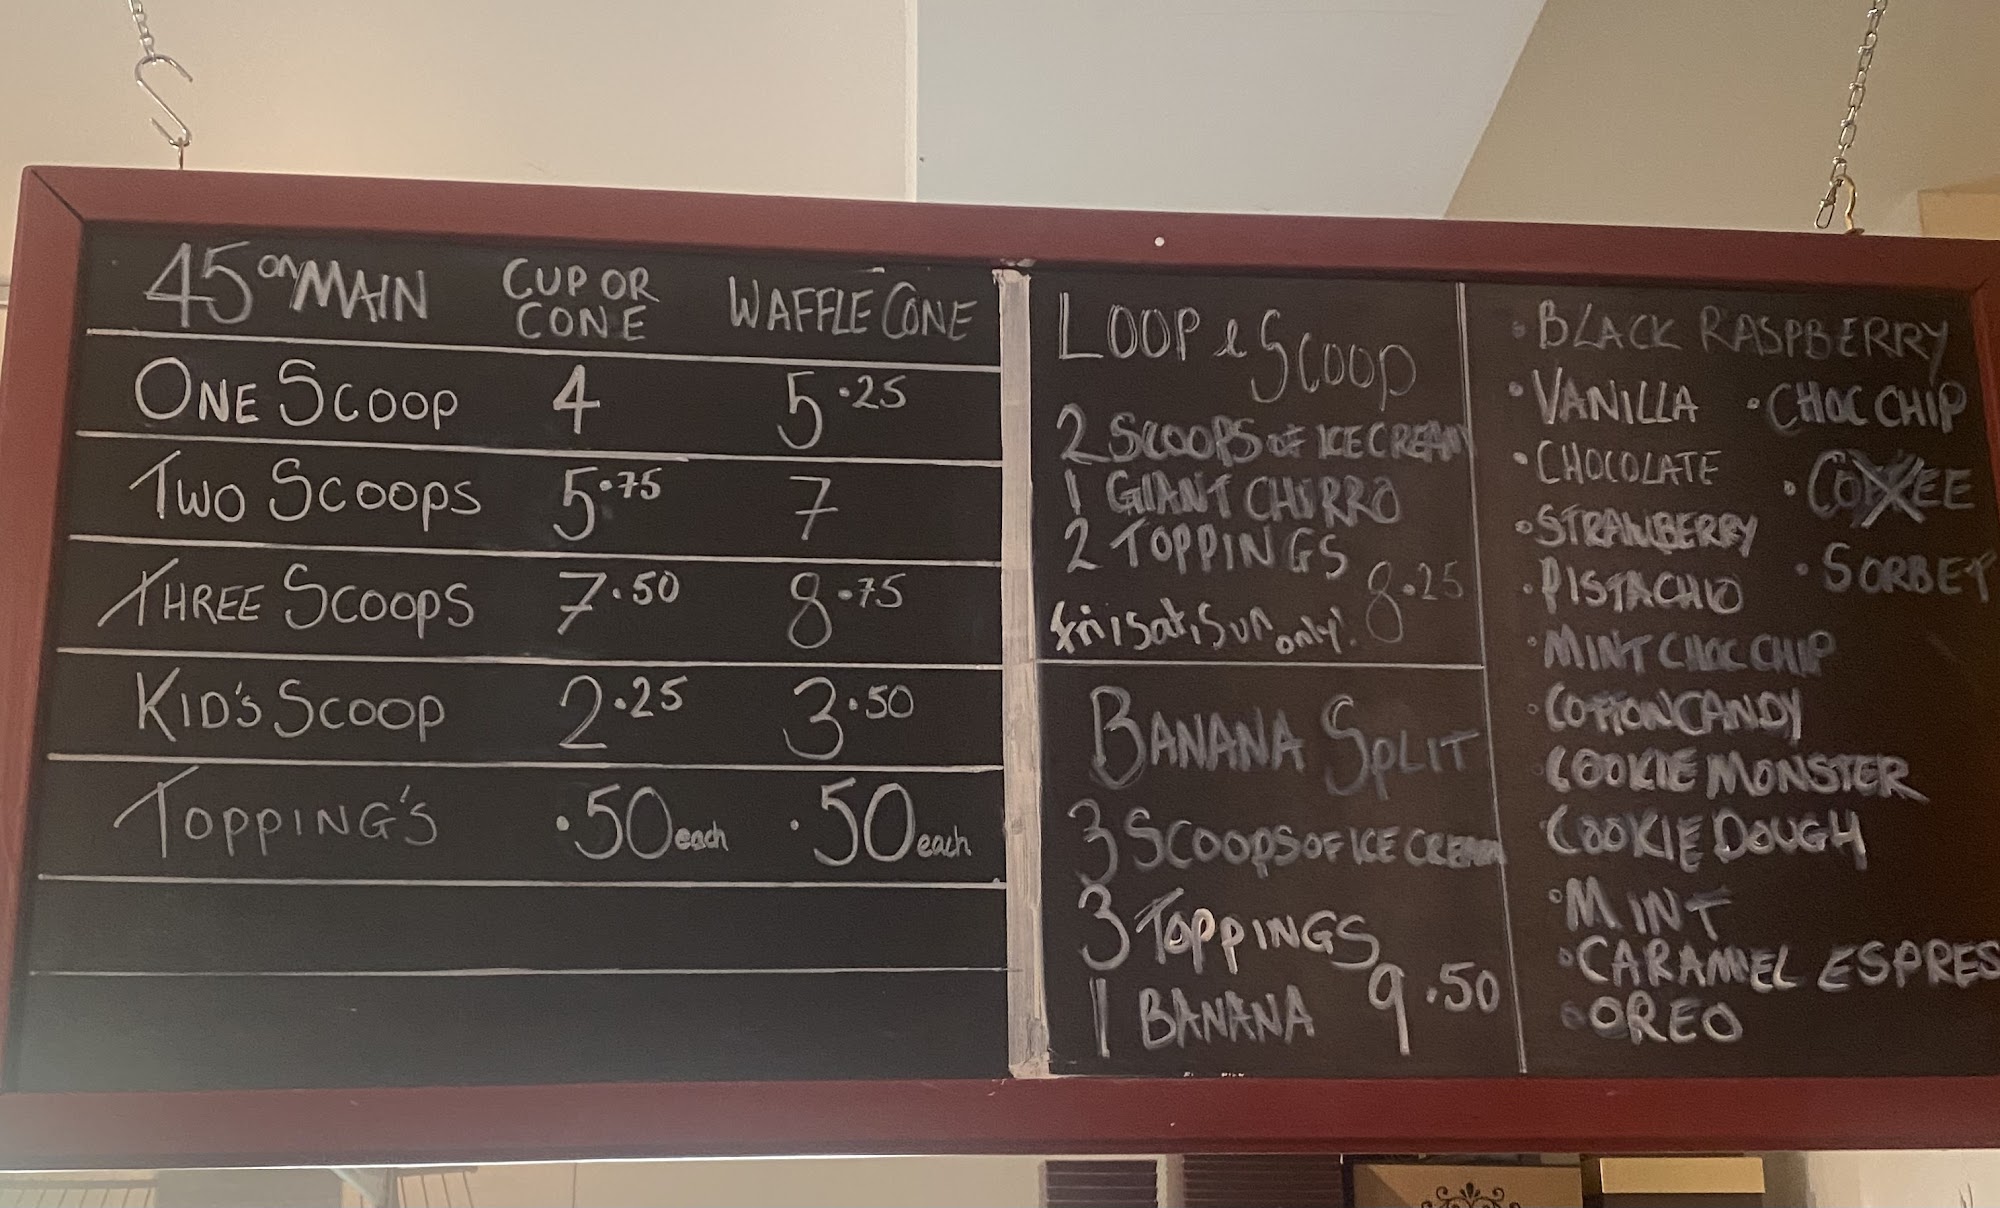 45 on MAIN CUP OR CONE WAFFLE CONE
ONE SCOOP 4 5.25
TWO SCOOPS 5.75 7
THREE SCOOPS 7.50 8.75
KID'S SCOOP 2.25 3.50
TOPPING'S .50 each .50 each
LOOP & SCOOP
2 SCOOPS OF ICE CREAM
1 GIANT CHURRO
2 TOPPINGS
8.25
fri, sat, sun only!
BANANA SPLIT
3 SCOOPS OF ICE CREAM
3 TOPPINGS
1 BANANA 9.50
• BLACK RASPBERRY
• VANILLA • CHOC CHIP
• CHOCOLATE • COFFEE
• STRAWBERRY
• PISTACHIO • SORBET
• MINT CHOC CHIP
• COTTON CANDY
• COOKIE MONSTER
• COOKIE DOUGH
• MINT
• CARAMEL ESPRES
• OREO